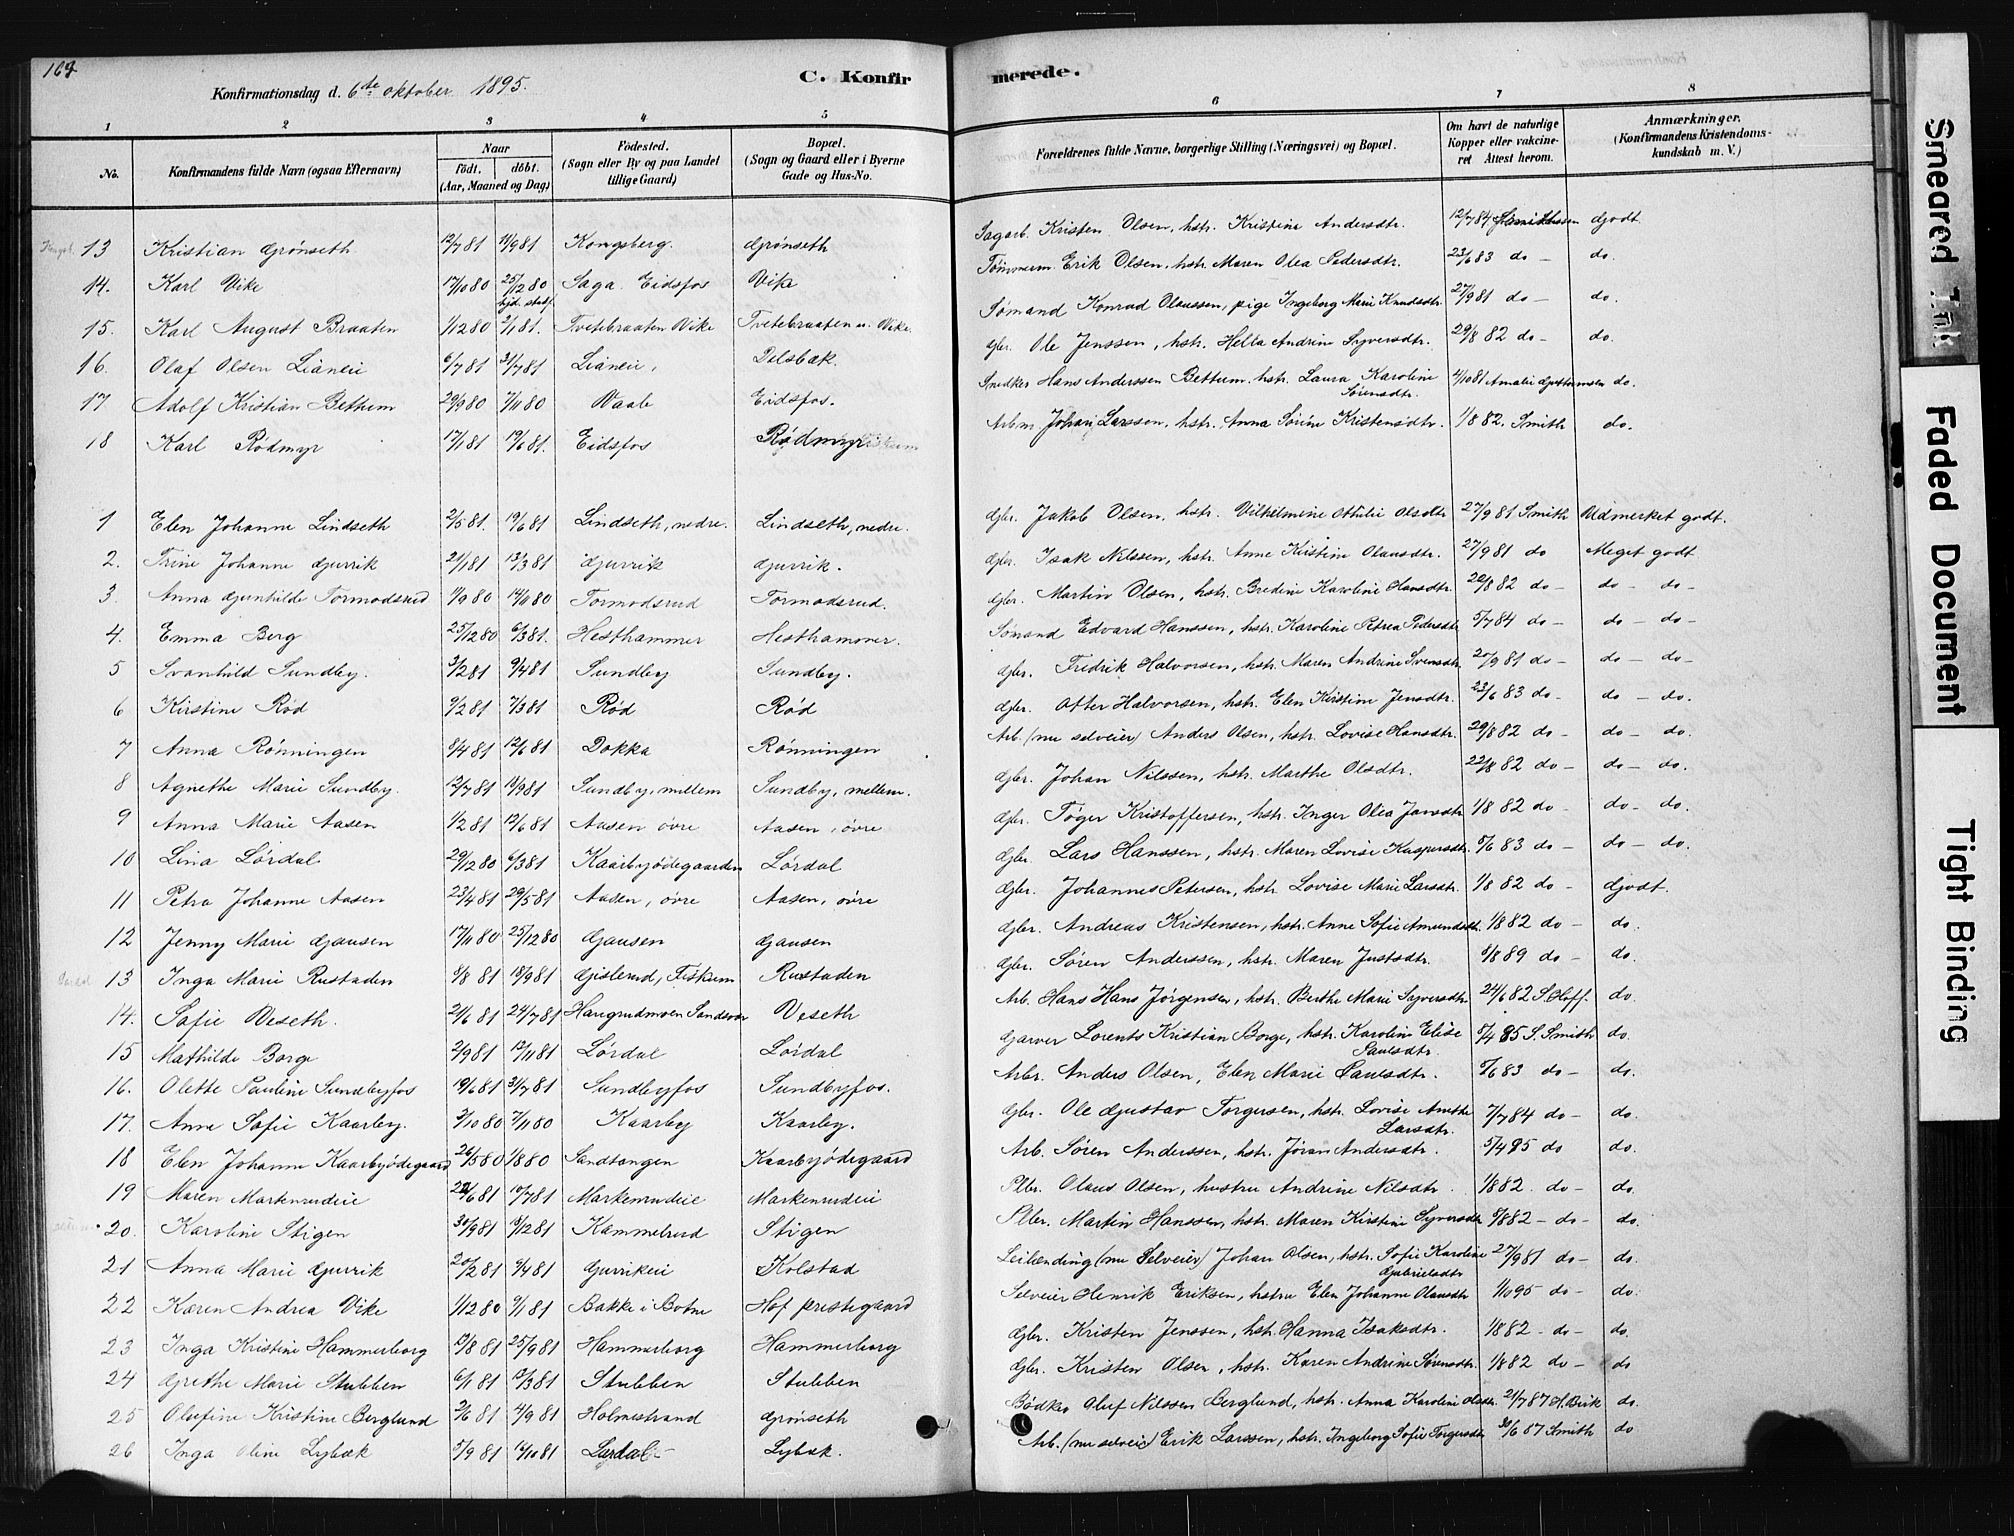 169
Konfirmationsdag d. 6te oktober 1895.
C. Konfirmerede.
1 2 3 4 5 6 7 8
No.
Konfirmandens fulde Navn (ogsaa Efternavn)
Naar
födt. döbt.
(Aar, Maaned og Dag)
Födested.
(Sogn eller By og paa Landet
tillige Gaard)
Bopæl.
(Sogn og Gaard eller i Byerne
Gade og Hus-No.
Forældrenes fulde Navne, borgerlige Stilling (Næringsvei) og Bopæl.
Om havt de naturlige
Kopper eller vakcine-
ret Attest herom.
Anmærkninger.
(Konfirmandens Kristendoms-
kundskab m. V.)
13 Kristian Grönseth 12/7 81 11/9 81 Kongsberg. Grönseth Sagarb. Kristen Olsen, hstr. Kristine Andersdtr. 12/7 84 Godt
14. Karl Vike 17/10 80 25/12 80 hjd. stadf. Saga Eidsfos Vike Tömmerm. Erik Olsen, hstr. Maren Olea Pedersdtr. 23/6 83 do - do.
15. Karl August Braaten 1/12 80 2/1 81. Tvetebraaten Vike Tvetebraaten u. Vike. Sömand Konrad Olaussen, pige Ingeborg Marie Knudsdtr. 27/9 81 do - do.
16. Olaf Olsen Lianeie 6/7 81 31/7 81 Lianeie, Delsbæk. Gbr. Ole Jenssen, hstr. Helle Andrine Syversdtr. 29/8 82 do - do.
17 Adolf Kristian Bettum 29/9 80 7/11 80 Vaale Eidsfos. Snedker Hans Anderssen Bettum, hstr. Laura Karoline Sörensdtr. 4/10 81 Amalie Guttormsen do.
18 Karl Rödmyr 17/1 81 19/6 81. Eidsfos Rødmyr Fiskum Arbm. Johan Larssen, hstr. Anna Sörine Kristensdtr. 1/8 82. Smith do.
1 Elen Johanne Lindseth 2/5 81. 19/6 81 Lindseth, nedre. Lindseth, nedre. Gbr. Jakob Olsen, hstr. Vilhelmine Othilie Olsdtr 27/9 81 Smith Udmerket godt.
2. Trine Johanne Gurrik 21/1 81 13/3 81 Gurrik Gurrik. Gbr. Isak Nilssen, hstr. Anne Kristine Olausdtr. 27/9 81 do Meget godt
3. Anna Gunhilde Tormodsrud 1/9 80 14/11 80 Tormodsrud Tormodsrud. Gbr. Martin Olsen, hstr. Bredine Karoline Hansdtr. 29/8 82 do - do - do -
4. Emma Berg 25/12 80 6/3 81. Hesthammer Hesthammer. Sömand Edvard Hanssen, hstr. Karoline Petrea Pedersdtr 5/7 84 do - do - do
5 Svanhild Sundby. 3/2 81 9/4 81 Sundby Sundby. Gbr. Fredrik Halvorsen, hstr. Maren Andrine Svensdtr. 20/9 81 do - do - do -
6 Kirstine Röd 9/2 81 7/3 81 Röd Röd Gbr. Otter Halvorsen, hstr. Elen Kirstine Jensdtr. 23/6 83 do - do - do.
7 Anna Rönningen 8/4 81 12/6 81 Dokka Rönningen Arb. (nu selveier) Anders Olsen, hstr. Lovise Hansdtr. 29/8 82 do - do - do.
8 Agnethe Marie Sundby. 12/7 81 11/9 81 Sundby, mellem Sundby, mellem. Gbr. Johan Nilssen, hstr. Marthe Olsdtr. 22/8 82 do - do - do.
9 Anna Marie Aasen 1/2 81 12/6 81 Aasen övre Aasen, övre Gbr. Töger Kristoffersen, hstr. Inger Olea Jansdtr 1/8 82 do - do - do.
10 Lina Lördal 29/12 80 6/3 81 Kaarbyödegaarden Lördal Gbr. Lars Hanssen, hstr. Maren Lovise Kaspersdtr. 5/6 83 do - do - do.
11 Petra Johanne Aasen 23/4 81 29/5 81 Aasen, övre Aasen, övre Gbr. Johannes Petersen, hstr. Lovise Marie Larsdtr. 1/8 82 do - Godt.
12 Jenny Marie Gausen 17/11 80 25/12 80 Gausen Gausen Gbr. Andreas Kristensen, hstr. Anne Sofie Amundsdtr. 1/8 82 do - do.
13 Inga Marie Rustaden 8/8 81 18/9 81 Gislerud, Fiskum Rustaden Gbr. Sören Anderssen, hstr. Maren Justsdtr. 8/8 89 do - do.
14. Sofie Veseth. 21/6 81 24/7 81 Haugrudmoen Sandsvær Veseth Arb. Hans Hans Jörgensen, hstr. Berthe Marie Syversdtr 24/6 82 S. Hoff. do.
15 Mathilde Borge 2/9 81 13/11 81 Lördal Lördal Garver Lorents Kristian Borge, hstr. Karoline Elise Paulsdtr. 5/4 85 S. Smith do.
16. Olette Pauline Sundbyfos 19/6 81 31/7 81 Sundbyfos Sundbyfos. Arbr. Anders Olsen, Elen Marie Paulsdtr. 5/6 83 do - do.
17. Anna Sofie Kaarby. 3/10 80 7/11 80 Kaarby Kaarby. Gbr. Ole Gustav Torgersen, hstr. Lovise Amalie Larsdtr. 7/7 84 do - do.
18 Elen Johanne Kaarbyödegaard 26/5 80 1/8 80 Sandtangen Kaarbyödegaard Arb. Sören Anderssen, hstr. Jöran Andersdtr. 5/4 85 do do.
19 Maren Markenrudeie 22/6 81 10/7 81 Markenrudeie Markenrudeie Plbr. Olaus Olsen, hustru Andrine Nilsdtr. 1/8 82. do - do.
20. Karoline Stigen 30/9 81 19/12 81 Kammelrud Stigen Plbr. Martin Hanssen, hstr. Maren Kirstine Syversdtr 5/8 82 - do - do.
21 Anna Marie Gurrik 20/2 81 3/4 81 Gurrikeie Kolstad Leilending (nu Selveier) Johan Olsen, hstr. Sofie Karoline Gabrielsdtr 27/9 81 do - do.
22 Karen Andrea Vike 1/12 80 9/1 81 Bakke i Botne Hof prestegaard Selveier Henrik Eriksen, hstru Elen Johanne Olausdtr 1/10 95 do - do.
23 Inga Kristine Hammerborg 13/8 81 25/9 81 Hammerborg Hammerborg Gbr. Kristen Jenssen, hstr. Hanna Isaksdtr. 1/8 82 - do - do.
24 Grethe Marie Stubben 6/1 81 13/3 81 Stubben Stubben Gbr. Kristen Olsen, hstr. Karen Andrine Sörensdtr. 1/8 82 do - do
25 Olufine Kristine Berglund 2/6 81 4/9 81 Holmestrand Grönseth Bödker Oluf Nilssen Berglund, hstr. Anna Karoline Olsdtr. 21/7 87 H. Birk do.
26 Inga Oline Lybæk 3/9 81 16/10 81 Lardal - Lybæk. Arb. (nu selveier) Erik Larssen, hstr. Ingeborg Sofie Torgersdtr 30/6 87 Smith do
Smeared Ink
Faded Document
Tight Binding